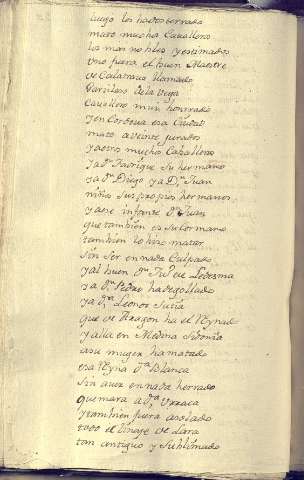 luego los ha desterrado
mato mucho Cavallero
los mas nobles y estimados
Uno fuera el buen Maestre
de Calatrava llamado
Garcilaso de la Vega
Cavallero muy honrrado
y en Cordova esa Ciudad
mato a veinte jurados
y a otros muchos Caballeros
y a Dn. Fadrique su hermano
y a Dn. Diego y a Dn. Juan
niños sus propios hermanos
y a ese infante Dn. Juan
que tambien es su cormano
tambien lo hizo matar
sin ser en nada Culpado
y al buen Dn. de Ledesma
y a Dn. Pedro ha degollado
y a Da. Leonor su tia
que de Aragon ha el Reynado
y alla en Medina Sidonia
a su muger ha matado
esa Reyna Da. Blanca
sin aver en nada herrado
quemara a Da. Urraca
y tambien fuera asolado
todo el linage de Lara
tan antiguo y sublimado